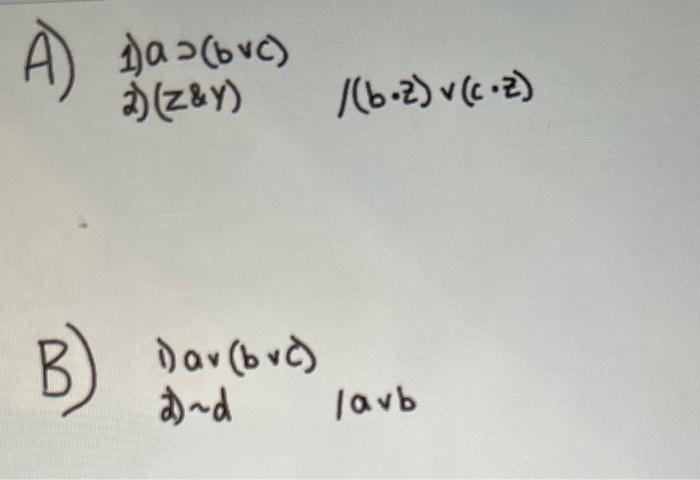 A) 1) a ⊃ (b v c)
2) (z & y) /(b · z) v (c · z)
B) 1) a v (b v c)
2) ~d /a v b